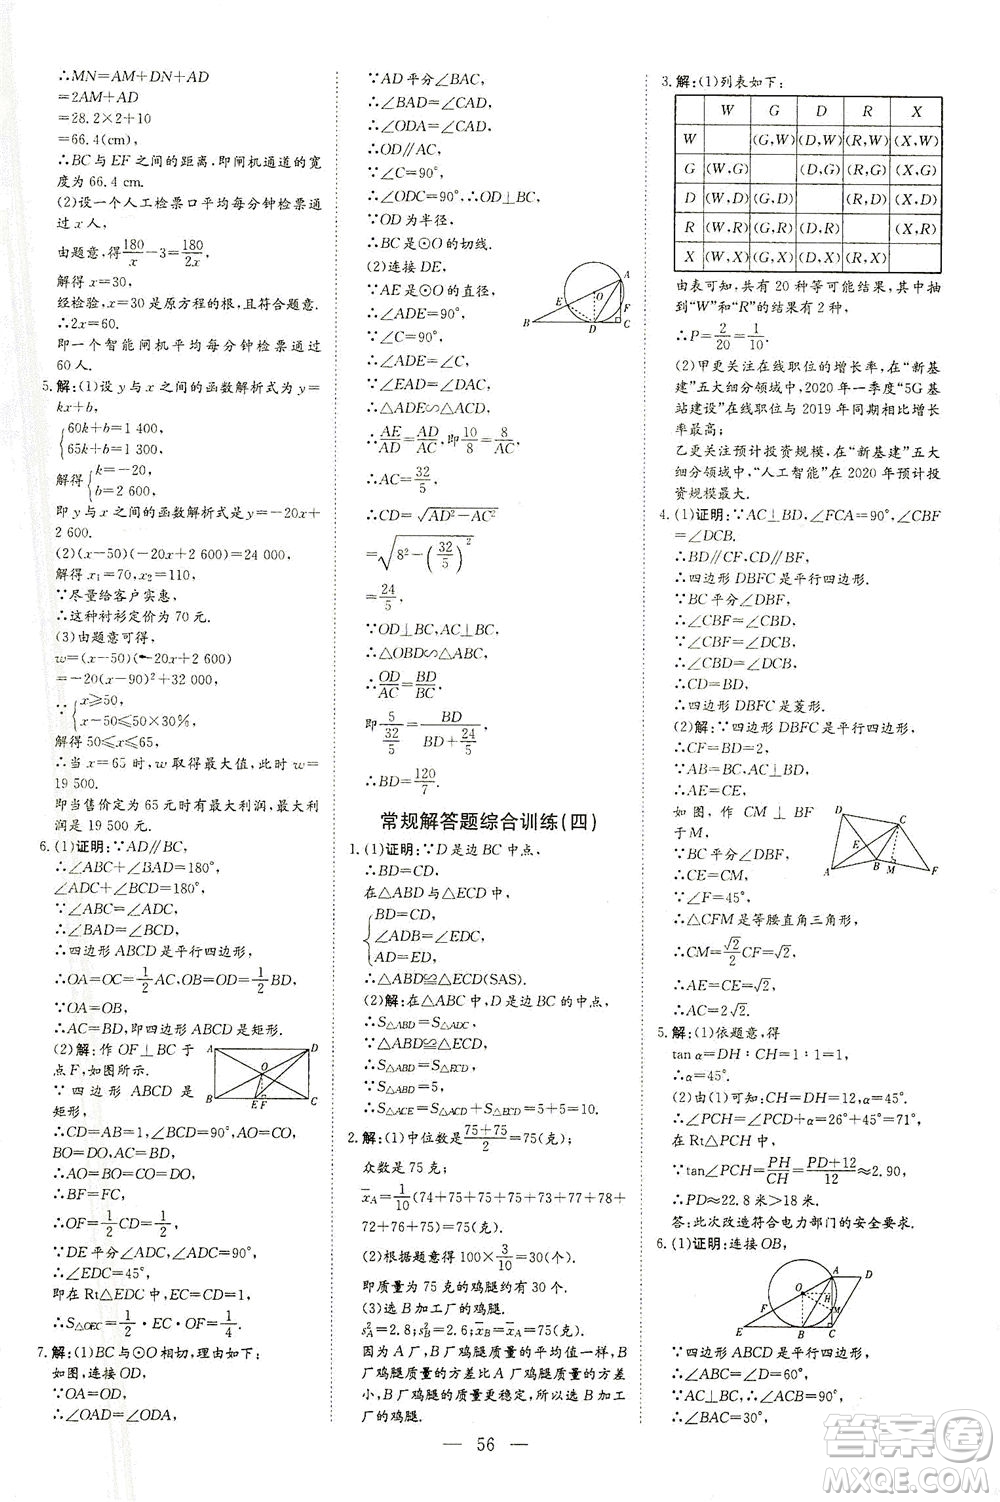 ∴MN=AM+DN+AD
=2AM+AD
=28.2×2+10
=66.4(cm),
∴BC 与 EF 之间的距离,即闸机通道的宽
度为 66.4 cm.
(2)设一个人工检票口平均每分钟检票通
过 x 人,
由题意,得180/x−3=180/2x,
解得 x=30,
经检验,x=30 是原方程的根,且符合题意.
∴2x=60.
即一个智能闸机平均每分钟检票通过
60 人.
5.解:(1)设 y 与 x 之间的函数解析式为 y=
kx+b,
{60k+b=1 400,
65k+b=1 300,
解得{k=−20,
b=2 600,
即 y 与 x 之间的函数解析式是 y=−20x+
2 600.
(2)(x−50)(−20x+2 600)=24 000,
解得 x₁=70,x₂=110,
∵尽量给客户实惠,
∴这种衬衫定价为 70 元.
(3)由题意可得,
w=(x−50)(−20x+2 600)
=−20(x−90)²+32 000,
∵{x≥50,
x−50≤50×30%,
解得 50≤x≤65,
∴当 x=65 时,w 取得最大值,此时 w=
19 500.
即当售价定为 65 元时有最大利润,最大利
润是 19 500 元.
6.(1)证明:∵AD∥BC,
∴∠ABC+∠BAD=180°,
∠ADC+∠BCD=180°,
∵∠ABC=∠ADC,
∴∠BAD=∠BCD,
∴四边形 ABCD 是平行四边形,
∴OA=OC=1/2AC,OB=OD=1/2BD,
∵OA=OB,
∴AC=BD,即四边形 ABCD 是矩形.
(2)解:作 OF⊥BC 于
点 F,如图所示.
∵四边形 ABCD 是
矩形,
∴CD=AB=1,∠BCD=90°,AO=CO,
BO=DO,AC=BD,
∴AO=BO=CO=DO,
∴BF=FC,
∴OF=1/2CD=1/2,
∵DE 平分∠ADC,∠ADC=90°,
∴∠EDC=45°,
即在 Rt△EDC 中,EC=CD=1,
∴S△OEC=1/2·EC·OF=1/4.
7.解:(1)BC 与⊙O 相切,理由如下:
如图,连接 OD,
∵OA=OD,
∴∠OAD=∠ODA,
∵AD 平分∠BAC,
∴∠BAD=∠CAD,
∴∠ODA=∠CAD,
∴OD∥AC,
∵∠C=90°,
∴∠ODC=90°,∴OD⊥BC,
∵OD 为半径,
∴BC 是⊙O 的切线.
(2)连接 DE,
∵AE 是⊙O 的直径,
∴∠ADE=90°,
∵∠C=90°,
∴∠ADE=∠C,
∵∠EAD=∠DAC,
∴△ADE∽△ACD,
∴AE/AD=AD/AC,即10/8=8/AC,
∴AC=32/5,
∴CD=√(AD²−AC²)
=√(8²−(32/5)²)
=24/5,
∵OD⊥BC,AC⊥BC,
∴△OBD∽△ABC,
∴OD/AC=BD/BC,
即5/(32/5)=BD/(BD+24/5),
∴BD=120/7.
常规解答题综合训练(四)
1.(1)证明:∵D 是边 BC 中点,
∴BD=CD,
在△ABD 与△ECD 中,
{BD=CD,
∠ADB=∠EDC,
AD=ED,
∴△ABD≌△ECD(SAS).
(2)解:在△ABC 中,D 是边 BC 的中点,
∴S△ABD=S△ADC,
∵△ABD≌△ECD,
∴S△ABD=S△ECD,
∵S△ABD=5,
∴S△ACE=S△ACD+S△ECD=5+5=10.
2.解:(1)中位数是(75+75)/2=75(克),
众数是 75 克;
x̄A=1/10(74+75+75+75+73+77+78+
72+76+75)=75(克).
(2)根据题意得 100×3/10=30(个),
即质量为 75 克的鸡腿有 30 个.
(3)选 B 加工厂的鸡腿,
s²A=2.8;s²B=2.6;x̄B=x̄A=75(克),
因为 A 厂,B 厂鸡腿的平均值一样,B
厂鸡腿的质量的方差比 A 厂鸡腿的方差
小,B 厂鸡腿的质量更稳定,所以选 B 加工
厂的鸡腿.
3.解:(1)列表如下:
W G D R X
W (G,W) (D,W) (R,W) (X,W)
G (W,G) (D,G) (R,G) (X,G)
D (W,D) (G,D) (R,D) (X,D)
R (W,R) (G,R) (D,R) (X,R)
X (W,X) (G,X) (D,X) (R,X)
由表可知,共有 20 种等可能结果,其中抽
到“W”和“R”的结果有 2 种,
∴P=2/20=1/10.
(2)甲更关注在线职位的增长率,在“新基
建”五大细分领域中,2020 年一季度“5G 基
站建设”在线职位与 2019 年同期相比增长
率最高;
乙更关注预计投资规模,在“新基建”五大
细分领域中,“人工智能”在 2020 年预计投
资规模最大.
4.(1)证明:∵AC⊥BD,∠FCA=90°,∠CBF
=∠DCB.
∴BD∥CF,CD∥BF,
∴四边形 DBFC 是平行四边形.
∵BC 平分∠DBF,
∴∠CBF=∠CBD,
∵∠CBF=∠DCB,
∴∠CBD=∠DCB,
∴CD=BD,
∴四边形 DBFC 是菱形.
(2)解:∵四边形 DBFC 是平行四边形,
∴CF=BD=2,
∵AB=BC,AC⊥BD,
∴AE=CE,
如图,作 CM⊥BF
于 M,
∵BC 平分∠DBF,
∴CE=CM,
∵∠F=45°,
∴△CFM 是等腰直角三角形,
∴CM=√2/2CF=√2,
∴AE=CE=√2,
∴AC=2√2.
5.解:(1)依题意,得
tan α=DH:CH=1:1=1,
∴α=45°.
(2)由(1)可知:CH=DH=12,α=45°.
∴∠PCH=∠PCD+α=26°+45°=71°,
在 Rt△PCH 中,
∵tan∠PCH=PH/CH=(PD+12)/12≈2.90,
∴PD≈22.8 米>18 米.
答:此次改造符合电力部门的安全要求.
6.(1)证明:连接 OB,
∵四边形 ABCD 是平行四边形,
∴∠ABC=∠D=60°,
∵AC⊥BC,∴∠ACB=90°,
∴∠BAC=30°,
— 56 —
答案圈
MXQE.COM